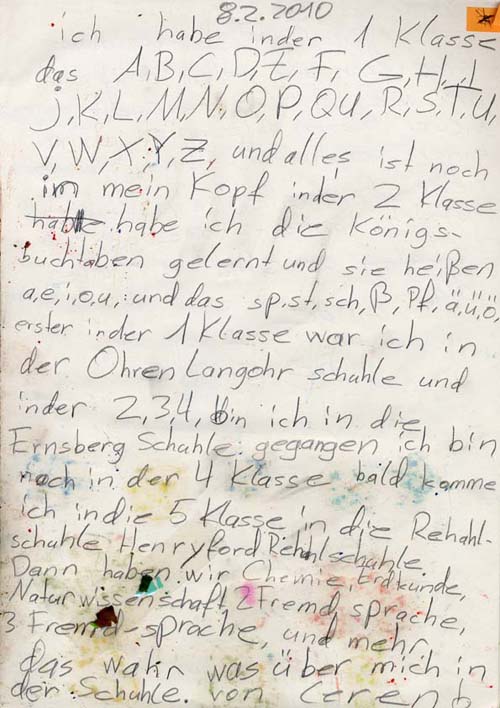 8.2.2010
ich habe inder 1 Klasse
das A,B,C,D,E,F,G,H,I
j,K,L,M,N,O,P,QU,R,S,T,U,
V,W,X,Y,Z, und alles ist noch
im mein Kopf inder 2 Klasse
habe habe ich die Königs-
buchtaben gelernt und sie heißen
a,e,i,o,u, und das sp,st,sch,ß,Pf,ä,ü,ö,
erster inder 1 Klasse war ich in
der Ohren Langohr schuhle und
inder 2,3,4, bin ich in die
Ernsberg Schuhle gegangen ich bin
noch in der 4 Klasse bald komme
ich indie 5 Klasse in die Rehahl-
schuhle Henryford Rehahlschuhle
Dann haben wir Chemie, Erdkunde,
Naturwissenschaft 2 Fremd sprache,
3 Fremd-sprache, und mehr
das wahr was über mich in
der Schuhle. von Ceren b